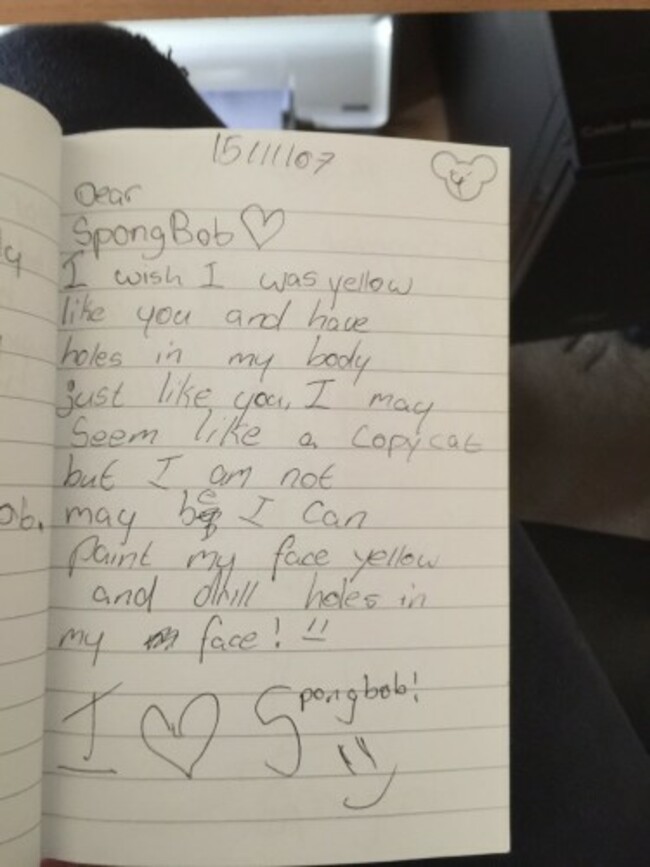 15/11/07
Dear
SpongBob
I wish I was yellow
like you and have
holes in my body
just like you, I may
Seem like a copycat
but I am not
may be I can
paint my face yellow
and dhill holes in
my face!
I ♡ Spongbob!
ly
ob.